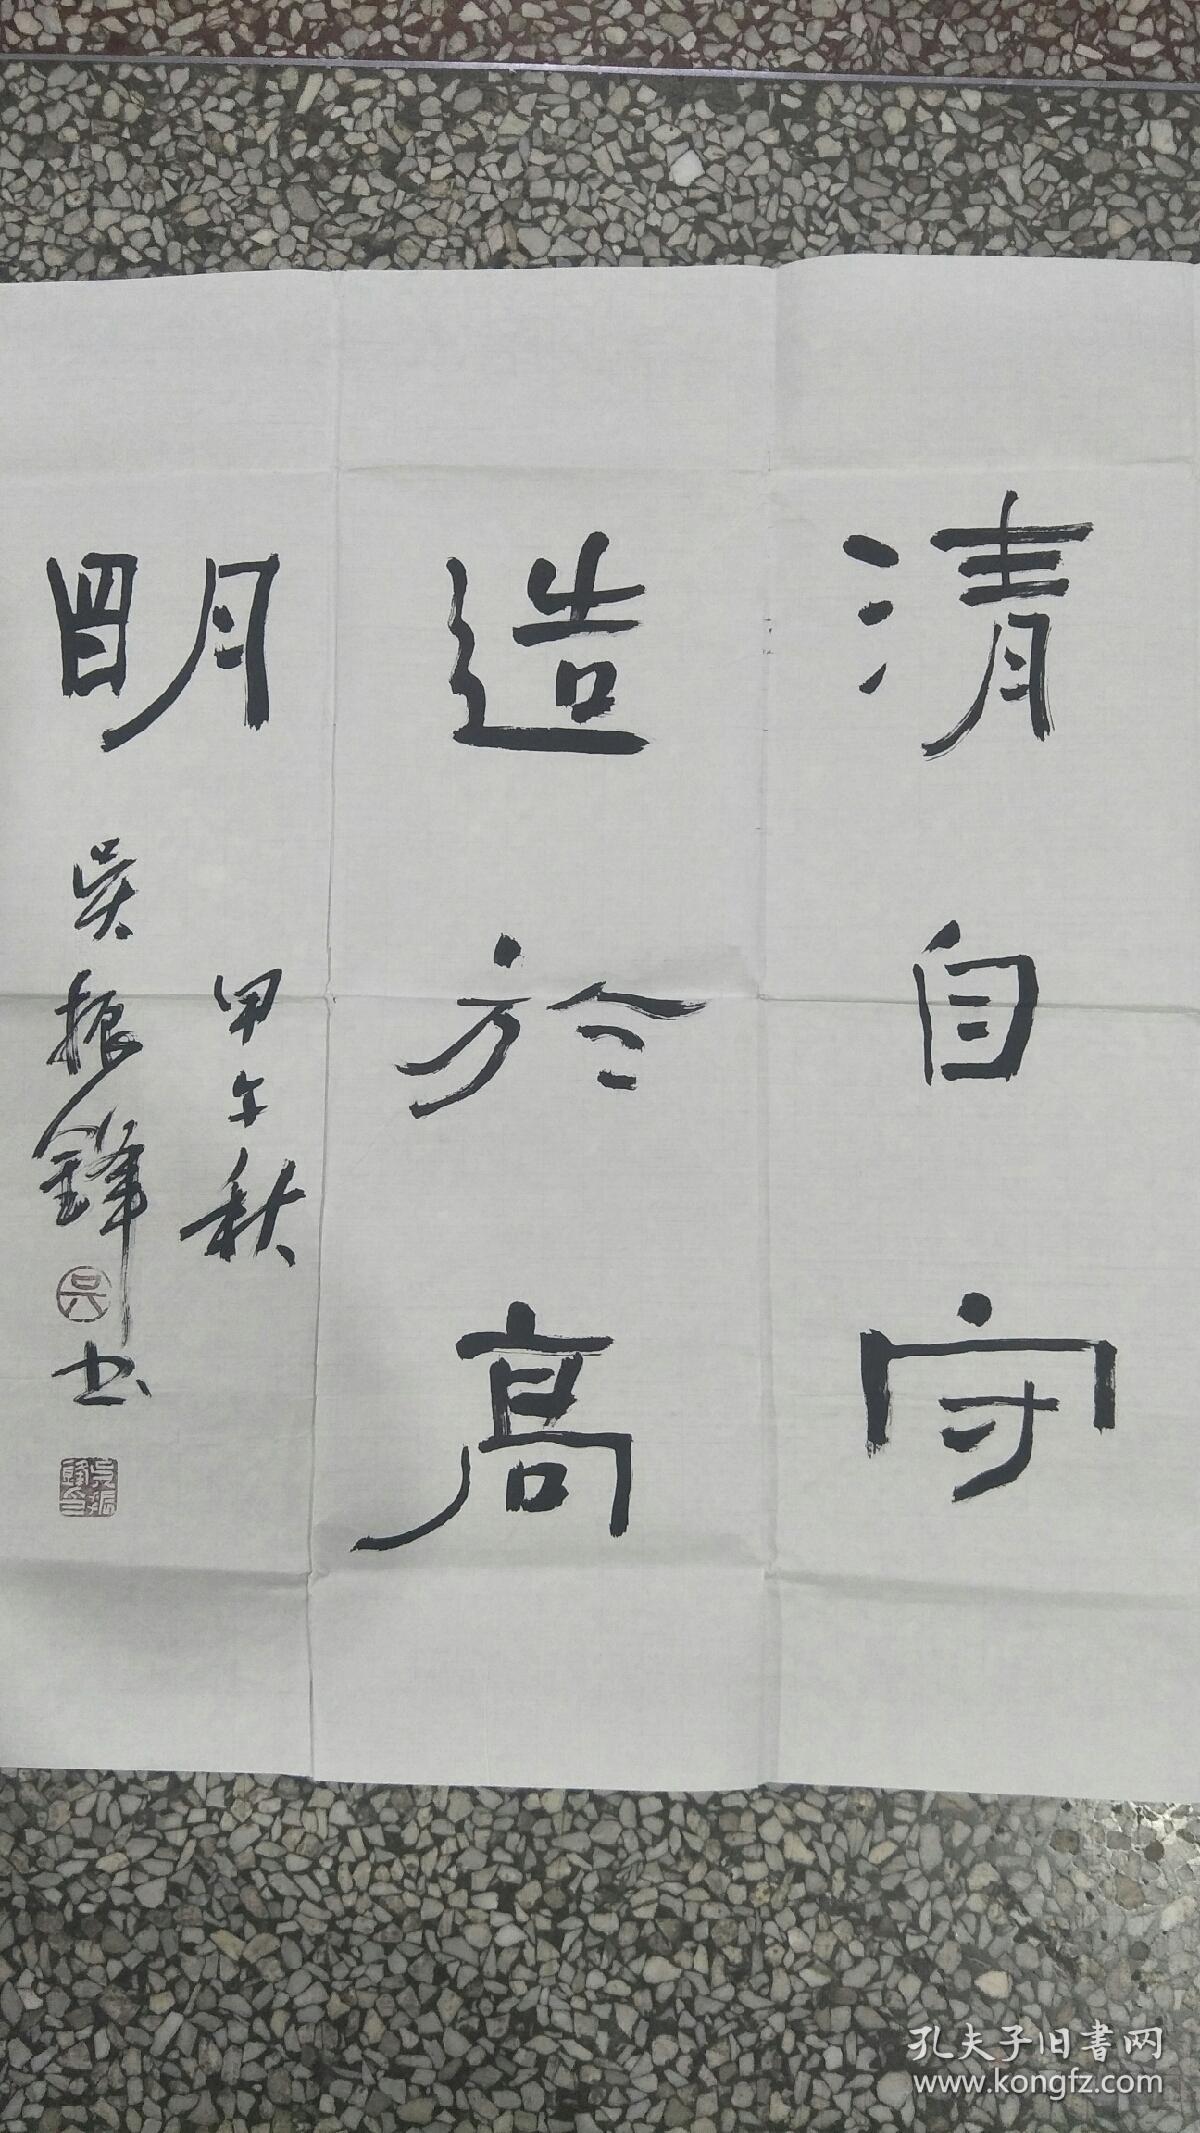 清自守
造於高
明
甲午秋
吴振鋒书
吴
吴振鋒印
孔夫子旧書网
www.kongfz.com